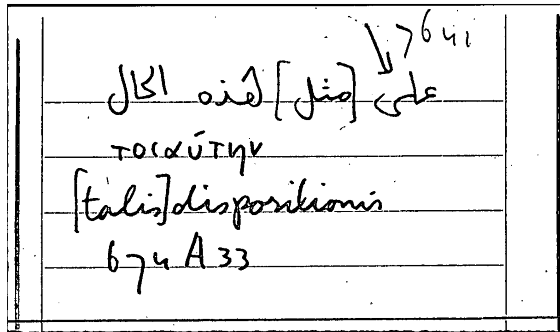 على [مثل] هذه الحال
τοιαύτην
[talis] dispositionis
674 A 33